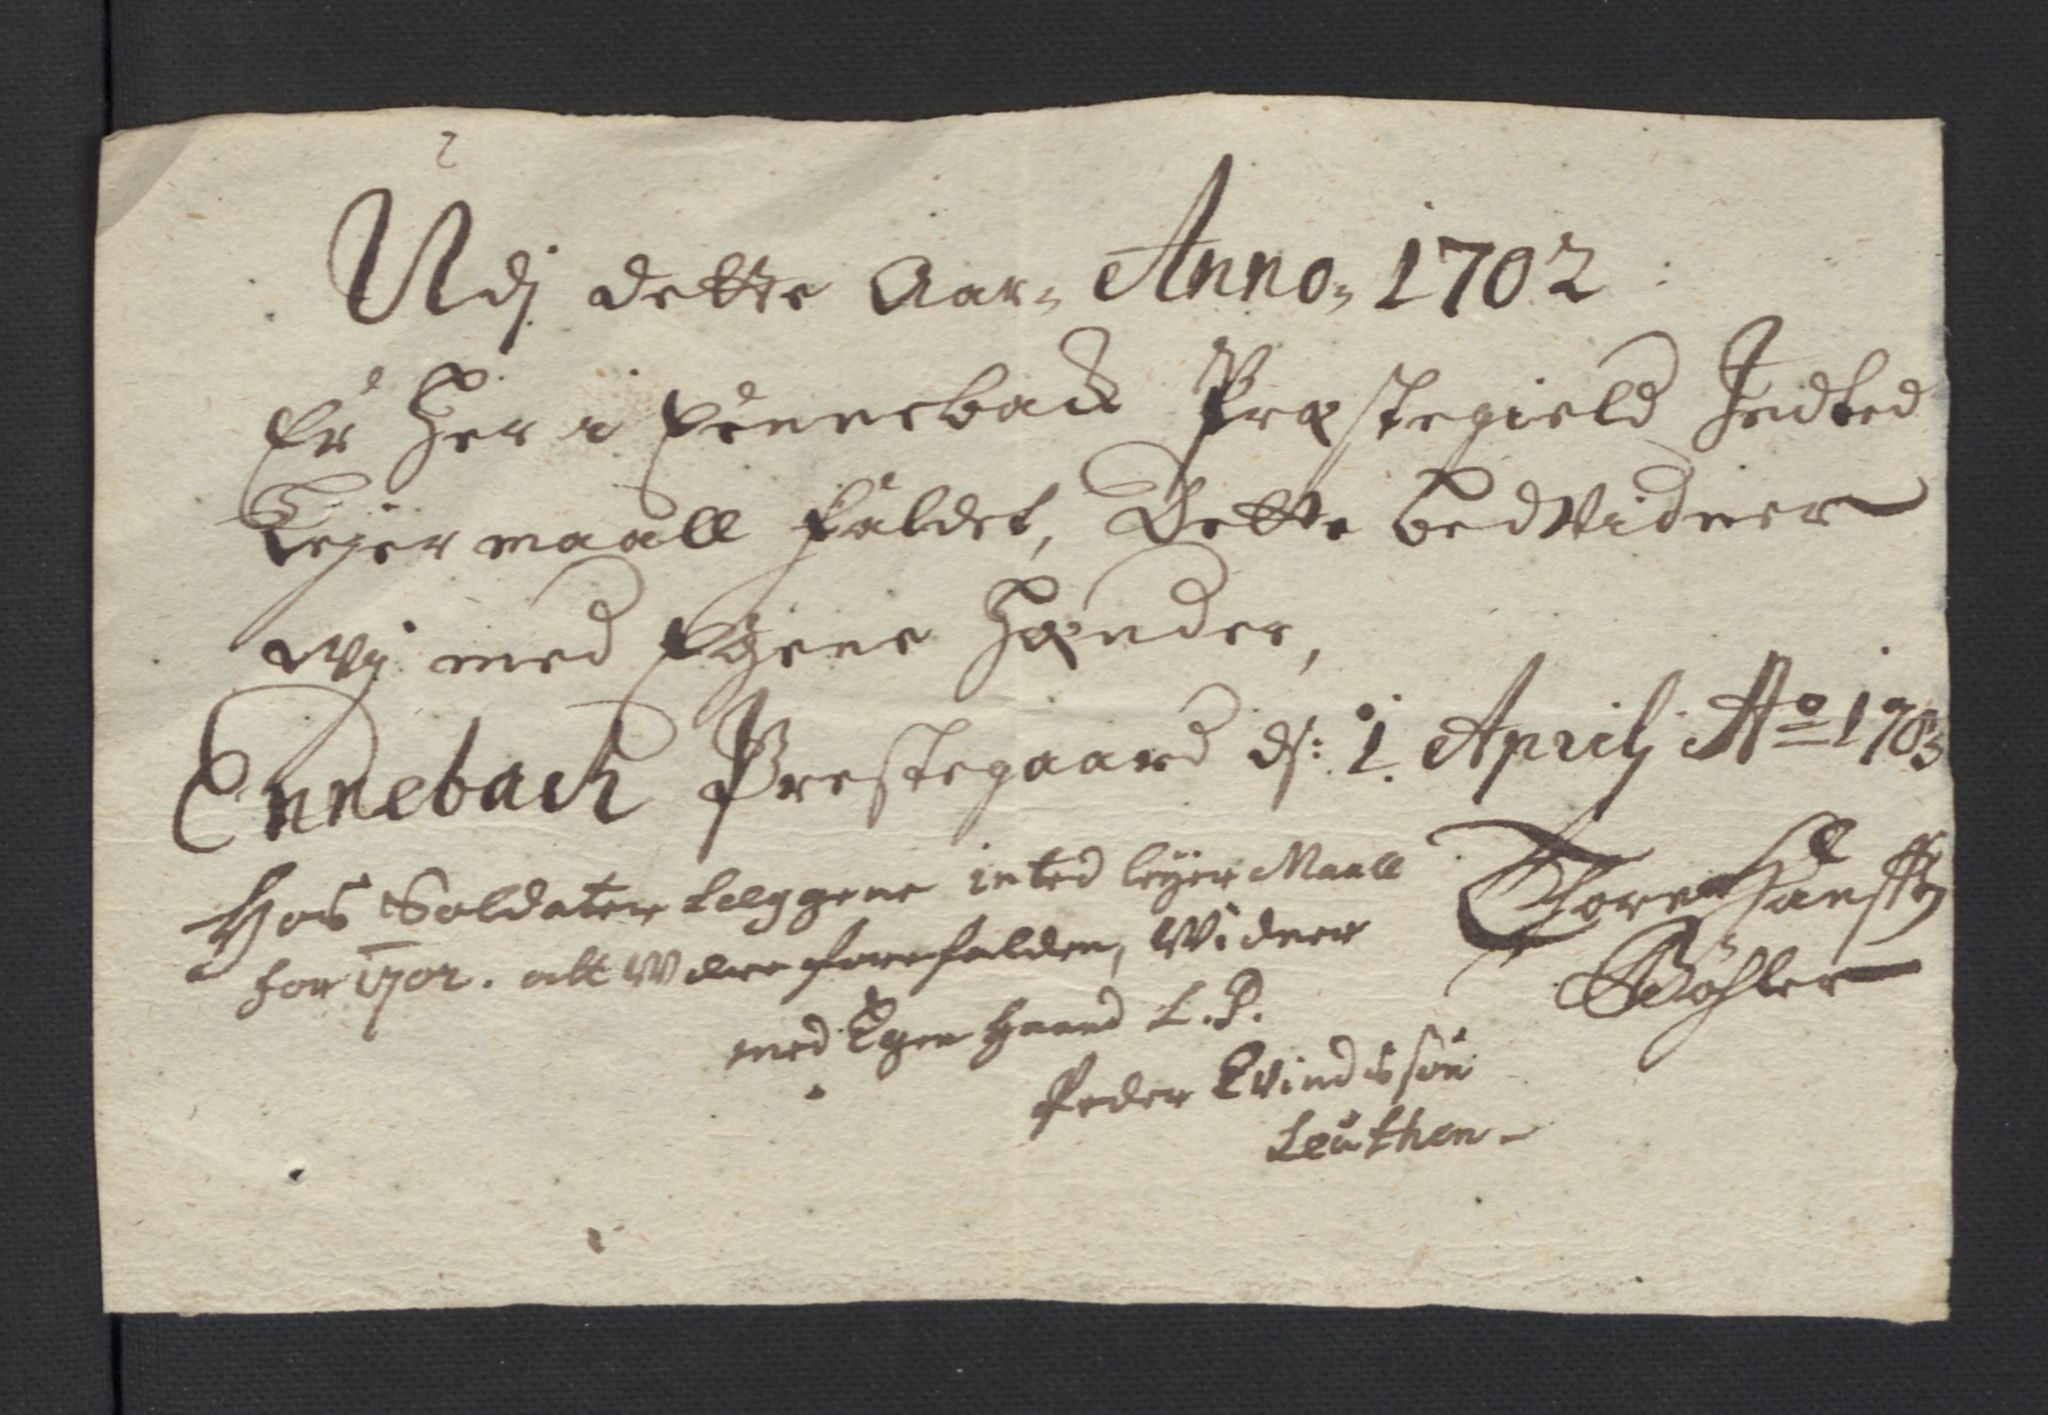 2
Udj dette Aar, Anno, 1702
Er Her i Ennebach Præstegield Indted
Leyermaall faldet, Dette bedvidner
wij med Egene Hænder,
Ennebach Prestegaard ds: 1. Aprilj Ao 1703
Hos Soldater Læggene inted leyer Maall
for 1702. att Were forefalden, Widner
med Egen Haand L. P.
Peder Evindssøn
Leuthen
Thore Hansen
Bøhler